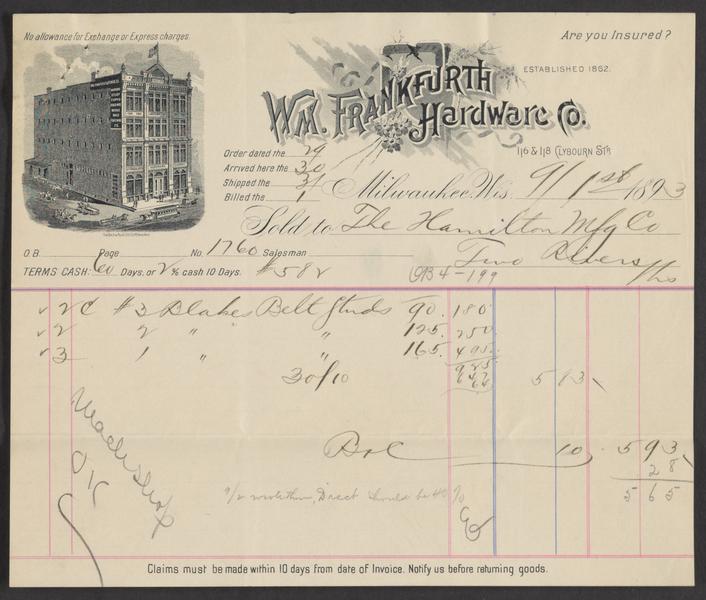 No allowance for Exchange or Express charges.
Are you Insured?
ESTABLISHED 1862.
WM. FRANKFURTH
Hardware Co.
116 & 118 CLYBOURN STR.
Order dated the 29
Arrived here the 30
Shipped the 31
Billed the 1
Milwaukee, Wis. 9/1st 1893
Sold to The Hamilton Mfg Co
Two Rivers
O.B. Page No. 1760 Salesman
TERMS CASH: 60 Days, or 2 % cash 10 Days. #582
134-199
✓ 2 C #3 Blakes Belt Studs 90. 180
✓ 2 2 " " 125. 250
✓ 3 1 " " 165. 495
925
30/10 647
64 583
Box 10 593
28
565
OK
Direct should be 40 %
Claims must be made within 10 days from date of Invoice. Notify us before returning goods.